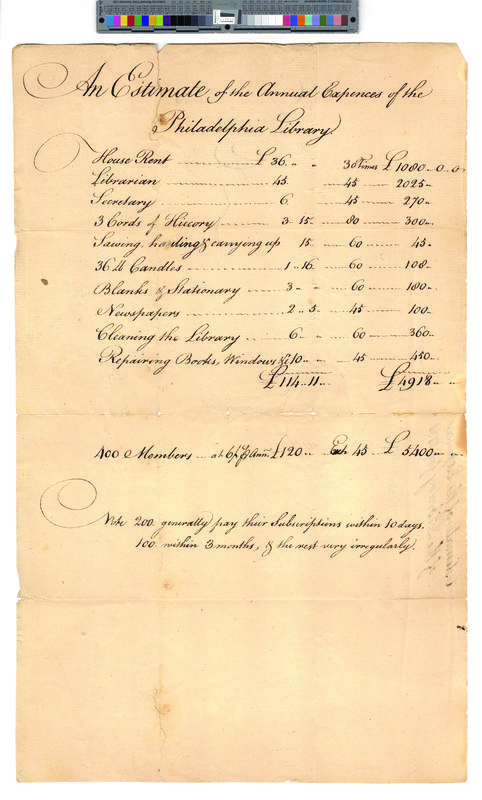 An Estimate of the Annual Expences of the
Philadelphia Library
House Rent £ 36 " " 30 Times £ 1080 " 0 " 0
Librarian 45 45 2025
Secretary 6 45 270
3 Cords of Hiccory 3 15 80 300
Sawing, hauling & carrying up 15 60 45
36 lb Candles 1 16 60 108
Blanks & Stationary 3 60 180
Newspapers 2 5 45 100
Cleaning the Library 6 60 360
Repairing Books, Windows &c 10 45 450
£ 114 11 £ 4918
400 Members at 6/ ⅌ Ann. £ 120 Exh 45 £ 5400
Note 200 generally pay their Subscriptions within 10 days.
100 within 3 months, & the rest very irregularly.